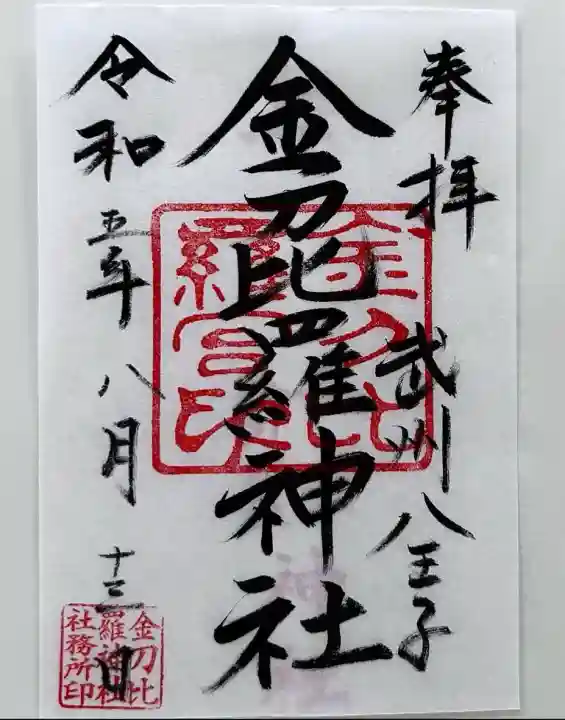 奉拝
武州八王子
金刀比羅神社
令和五年八月十三日
金刀比
羅神社
社務所印